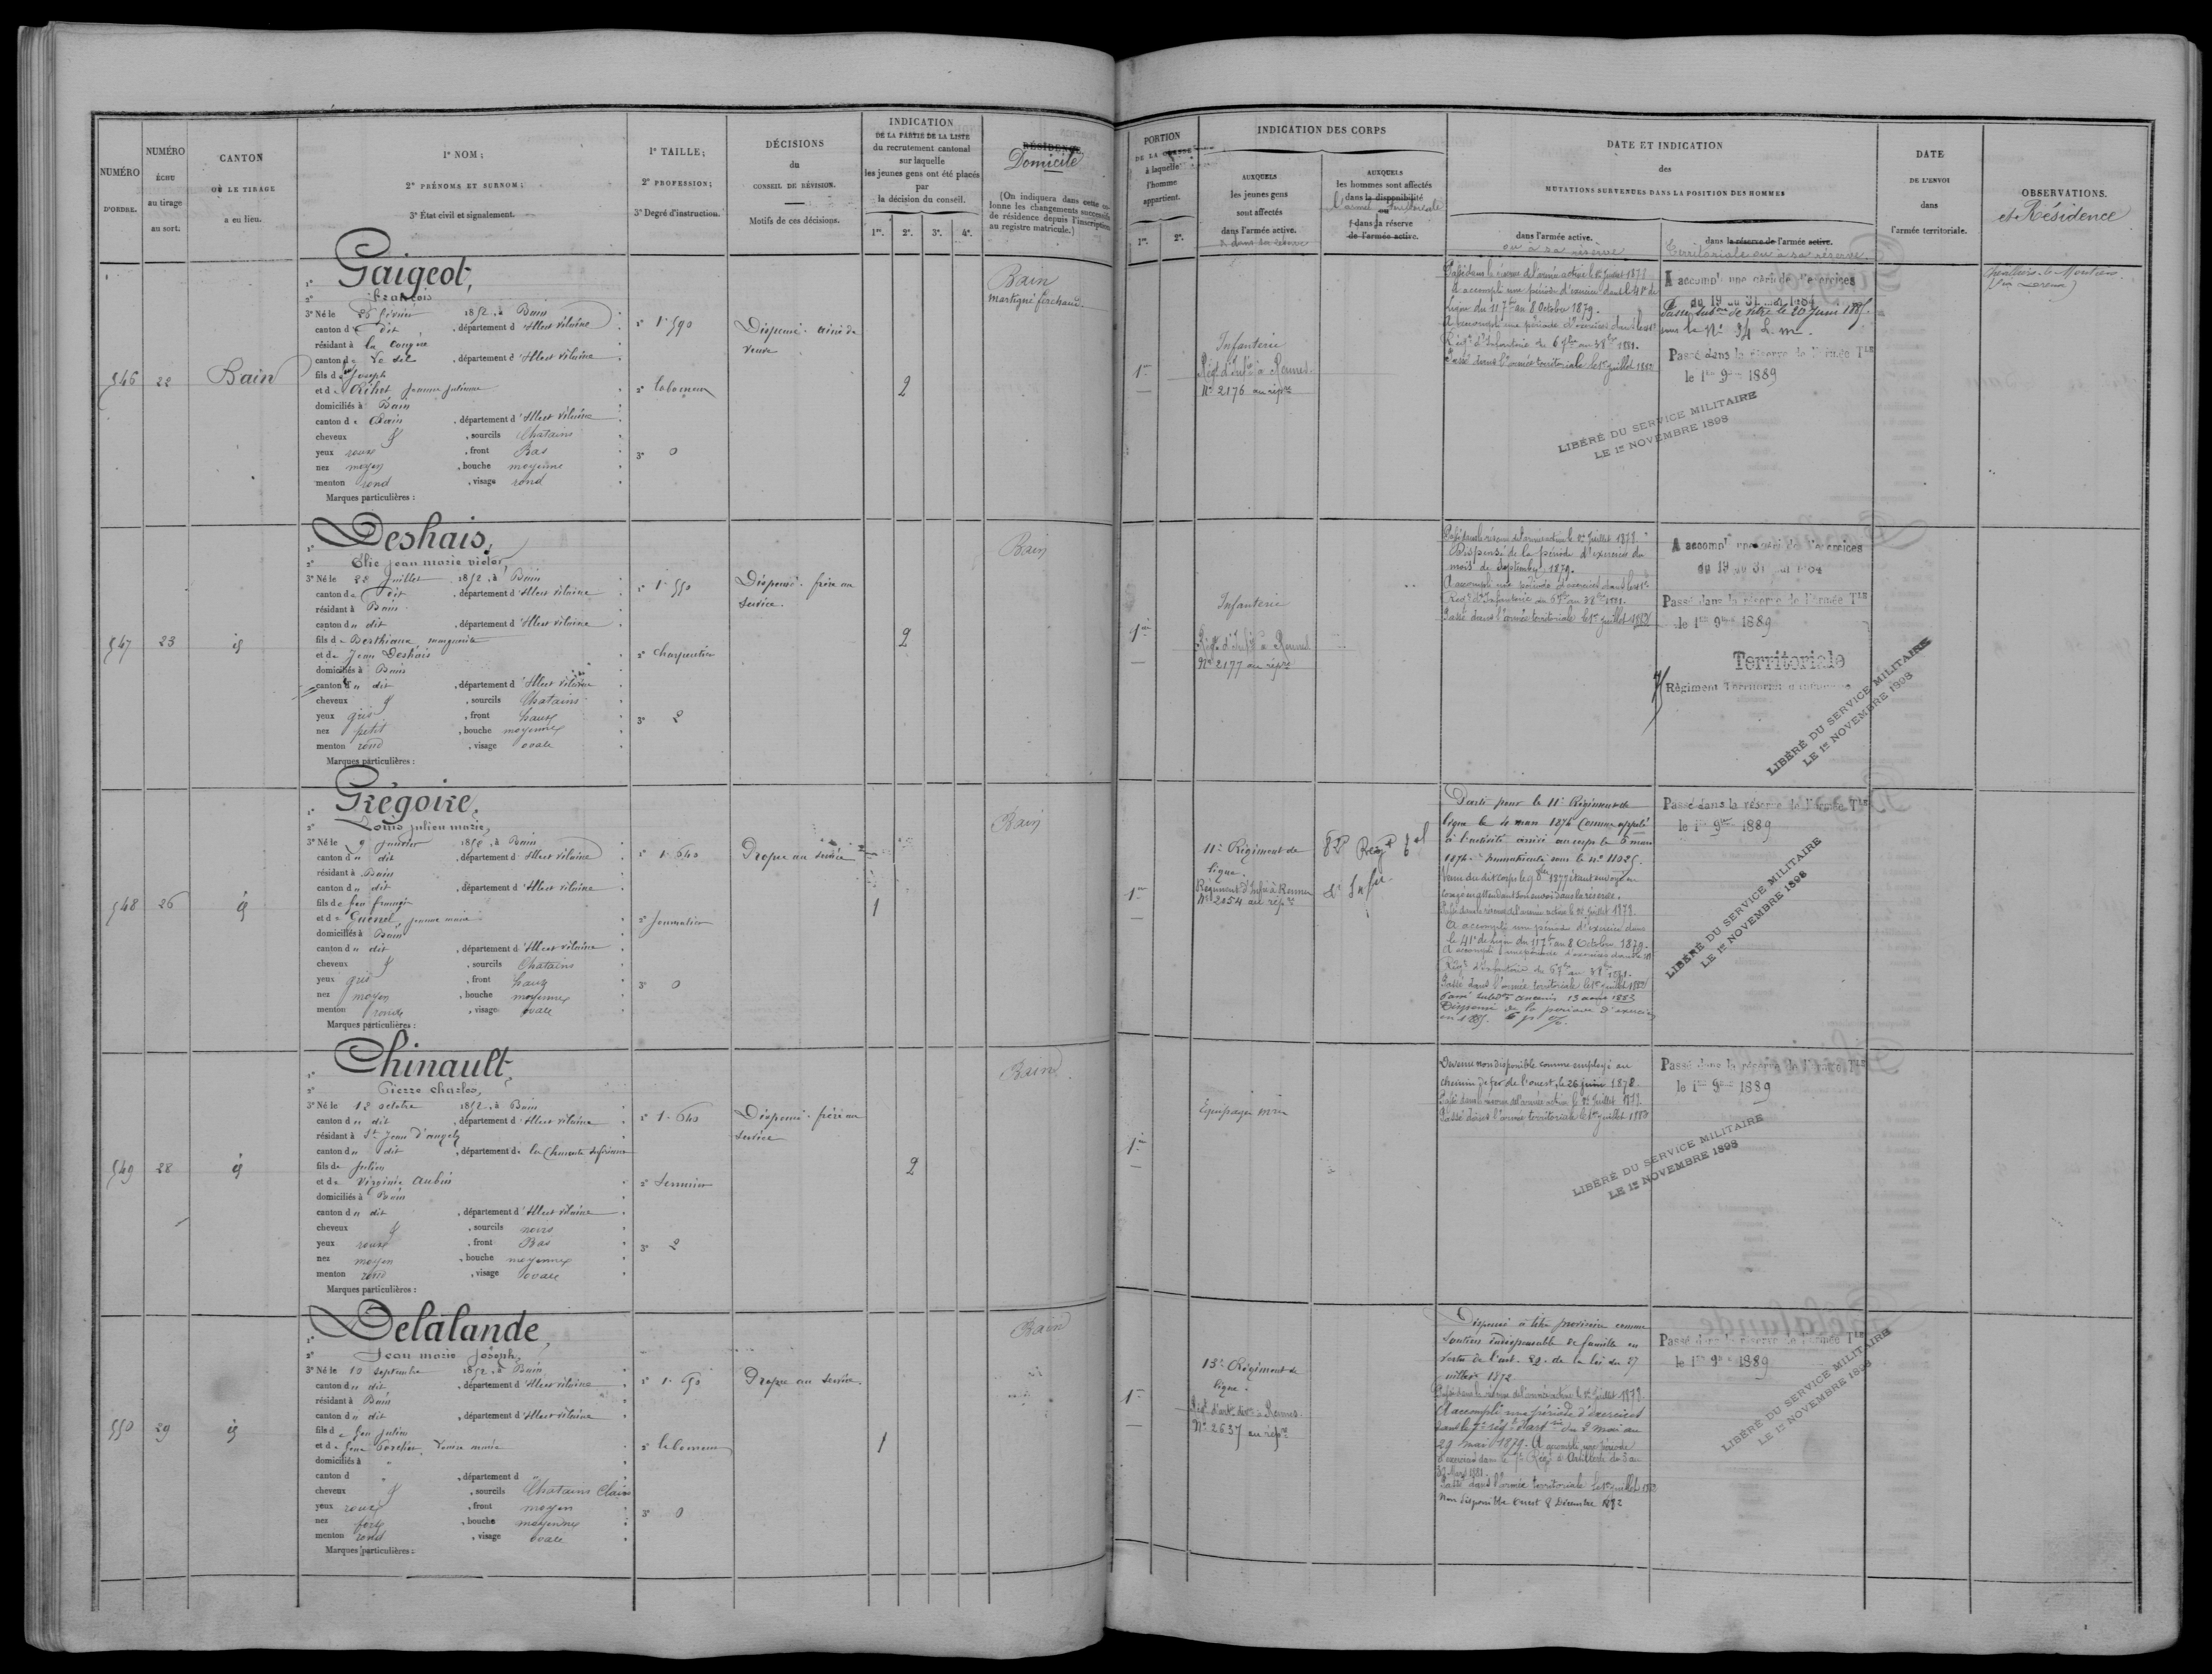 NUMÉRO
D'ORDRE.
NUMÉRO
ÉCHU
au tirage
au sort.
CANTON
OÙ LE TIRAGE
a eu lieu.
1° NOM;
2° PRÉNOMS ET SURNOM;
3° État civil et signalement.
1° TAILLE;
2° PROFESSION;
3° Degré d'instruction.
DÉCISIONS
du
CONSEIL DE RÉVISION.
Motifs de ces décisions.
INDICATION
DE LA PARTIE DE LA LISTE
du recrutement cantonal
sur laquelle
les jeunes gens ont été placés
par
la décision du conseil.
1re. 2e. 3e. 4e.
RÉSIDENCE
Domicile
(On indiquera dans cette co-
lonne les changements successifs
de résidence depuis l'inscription
au registre matricule.)
546
22
Bain
1° Gaigeot,
2° François
3° Né le 25 février 1852, à Bain
canton de dit, département d'Ille et Vilaine
résidant à la
canton de, département d'Ille et Vilaine
fils de Joseph
et de Jeanne Julienne
domiciliés à Bain
canton de Bain, département d'Ille et Vilaine
cheveux &, sourcils Chatains
yeux roux, front Bas
nez moyen, bouche moyenne
menton rond, visage rond
Marques particulières :
1° 1m 590
2° laboureur
3° 0
Dispensé. ainé de
veuve
2
Bain
martigné ferchaud
547
23
id
1° Deshais,
2° Elie Jean marie victor
3° Né le 28 Juillet 1852, à Bain
canton du dit, département d'Ille et Vilaine
résidant à Bain
canton du dit, département d'Ille et Vilaine
fils de Berthiaux marguerite
et de Jean Deshais
domiciliés à Bain
canton du dit, département d'Ille et Vilaine
cheveux &, sourcils Chatains
yeux gris, front haut
nez petit, bouche moyenne
menton rond, visage ovale
Marques particulières :
1° 1m 550
2° Charpentier
3° 2
Dispensé. frère au
Service.
2
Bain
548
26
id
1° Grégoire,
2° Louis Julien marie,
3° Né le 9 Janvier 1852, à Bain
canton du dit, département d'Ille et Vilaine
résidant à Bain
canton du dit, département d'Ille et Vilaine
fils de feu françois
et de Guénel Jeanne marie
domiciliés à Bain
canton du dit, département d'Ille et Vilaine
cheveux &, sourcils Chatains
yeux gris, front haut
nez moyen, bouche moyenne
menton rond, visage ovale
Marques particulières :
1° 1m 640
2° Journalier
3° 0
Propre au service
1
Bain
549
28
id
1° Chinault,
2° Pierre charles,
3° Né le 12 octobre 1852, à Bain
canton du dit, département d'Ille et Vilaine
résidant à St Jean d'angely
canton du dit, département de la Charente Inférieure
fils de Julien
et de Virginie Aubin
domiciliés à Bain
canton du dit, département d'Ille et Vilaine
cheveux &, sourcils noirs
yeux roux, front Bas
nez moyen, bouche moyenne
menton rond, visage ovale
Marques particulières :
1° 1m 640
2° Serrurier
3° 2
Dispensé. frère au
Service
2
Bain
550
29
id
1° Delalande
2° Jean marie Joseph,
3° Né le 10 septembre 1852, à Bain
canton du dit, département d'Ille et Vilaine
résidant à Bain
canton du dit, département d'Ille et Vilaine
fils de feu Julien
et de feue Porcher, Louise marie
domiciliés à "
canton d ", département d "
cheveux &, sourcils Chatains Clairs
yeux roux, front moyen
nez fort, bouche moyenne
menton rond, visage ovale
Marques particulières :
1° 1m 690
2° laboureur
3° 0
Propre au service.
1
Bain
PORTION
à laquelle
l'homme
appartient.
1re. 2e.
INDICATION DES CORPS
AUXQUELS
les jeunes gens
sont affectés
dans l'armée active.
& dans sa réserve
AUXQUELS
les hommes sont affectés
dans la disponibilité
l'armée territoriale
ou
dans la réserve
de l'armée active.
DATE ET INDICATION
des
MUTATIONS SURVENUES DANS LA POSITION DES HOMMES
dans l'armée active.
ou à sa réserve
dans la réserve de l'armée active.
territoriale ou à sa réserve
DATE
DE L'ENVOI
dans
l'armée territoriale.
OBSERVATIONS.
et Résidence
1re
Infanterie
Régt d'Infie à Rennes
No 2176 au répre
Passé dans la réserve de l'armée active le 1er Juillet 1878
A accompli une période d'exercices dans le 41e de
ligne du 11 7bre au 8 Octobre 1879.
A accompli une période d'exercices dans le 41e
Régt d'Infanterie du 6 7bre au 3 8bre 1881.
Passé dans l'armée territoriale le 1er Juillet 1882
A accompt une période d'exercices
du 19 au 31 mai 1884
le 20 Juin 1885.
Passé dans la réserve de l'armée Tle
le 1er 9bre 1889
LIBÉRÉ DU SERVICE MILITAIRE
LE 1er NOVEMBRE 1898
1re
Infanterie
Régt d'Infie à Rennes
No 2177 au répre
Passé dans la réserve de l'armée active le 1er Juillet 1878
Dispensé de la période d'exercices du
mois de Septembre 1879.
A accompli une période d'exercices dans le 41e
Régt d'Infanterie du 6 7bre au 3 8bre 1881.
Passé dans l'armée territoriale le 1er Juillet 1882
A accompt une période d'exercices
du 19 au 31 mai 1884
Passé dans la réserve de l'Armée Tle
le 1er 9bre 1889
Territoriale
Régiment Territorial d'Infanterie
LIBÉRÉ DU SERVICE MILITAIRE
LE 1er NOVEMBRE 1898
1re
11e Régiment de
ligne.
Régiment d'Infie à Rennes
No 2054 au répre
82e Régt tal
d'Infie
Parti pour le 11e Régiment de
ligne le 4 mars 1874 Comme appelé
à l'activité arrivé au corps le 6 mars
1874. Immatriculé sous le no 11025.
congé en attendant son envoi dans la réserve.
Passé dans la réserve de l'armée active le 1er Juillet 1878.
A accompli une période d'exercices dans
le 41e de ligne du 11 7bre au 8 Octobre 1879.
A accompli une période d'exercices dans le 41e
Régt d'Infanterie du 6 7bre au 3 8bre 1881.
Passé dans l'armée territoriale le 1er Juillet 1882
Passé subdon Ancenis 13 1883
Dispensé de la période d'exercices
en 1885.
Passé dans la réserve de l'armée Tle
le 1er 9bre 1889
LIBÉRÉ DU SERVICE MILITAIRE
LE 1er NOVEMBRE 1898
1re
Equipages mres
Devenu non disponible comme employé au
chemin de fer de l'ouest, le 26 juin 1878.
Passé dans la réserve de l'armée active le 1er Juillet 1878.
Passé dans l'armée territoriale le 1er Juillet 1882
Passé dans la réserve de l'armée Tle
le 1er 9bre 1889
LIBÉRÉ DU SERVICE MILITAIRE
LE 1er NOVEMBRE 1898
1re
13e Régiment de
ligne.
Régt d'art. à Rennes.
No 2637 au répre
Dispensé à titre provisoire comme
soutien indispensable de famille en
vertu de l'art. 22 de la loi du 27
juillet 1872
Passé dans la réserve de l'armée active le 1er Juillet 1878
A accompli une période d'exercices
dans le 7e régt d'artrie du 2 mai au
29 mai 1879. A accompli une période
d'exercices dans le 7e Régt d'Artillerie du 3 au
Mars 1881.
Passé dans l'armée territoriale le 1er Juillet 1882
Non disponible ouest 8 Décembre 1892
Passé dans la réserve de l'armée Tle
le 1er 9bre 1889
LIBÉRÉ DU SERVICE MILITAIRE
LE 1er NOVEMBRE 1898